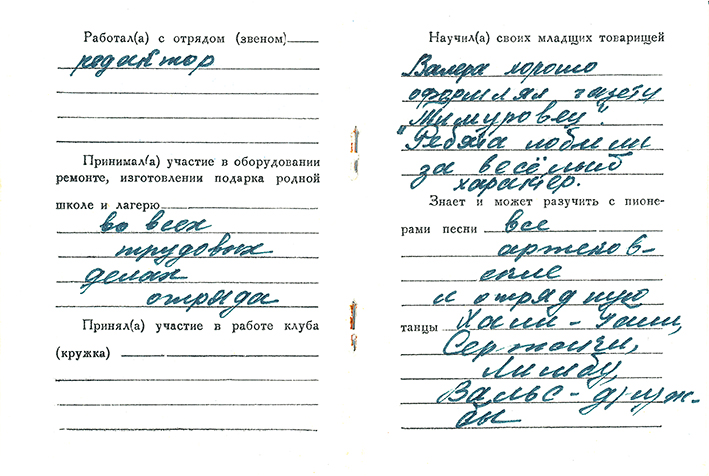 Работал(а) с отрядом (звеном)
редактор
Принимал(а) участие в оборудовании
ремонте, изготовлении подарка родной
школе и лагерю
во всех
трудовых
делах
отряда
Принял(а) участие в работе клуба
(кружка)
Научил(а) своих младщих товарищей
Валера хорошо
оформлял газету
"Тимуровец".
Ребята любили
за весёлый
характер.
Знает и может разучить с пионе-
рами песни все
артеков-
ские
и отрядную
танцы Хали-Гали,
Сержанки,
Лимбу,
Вальс-друж-
бы